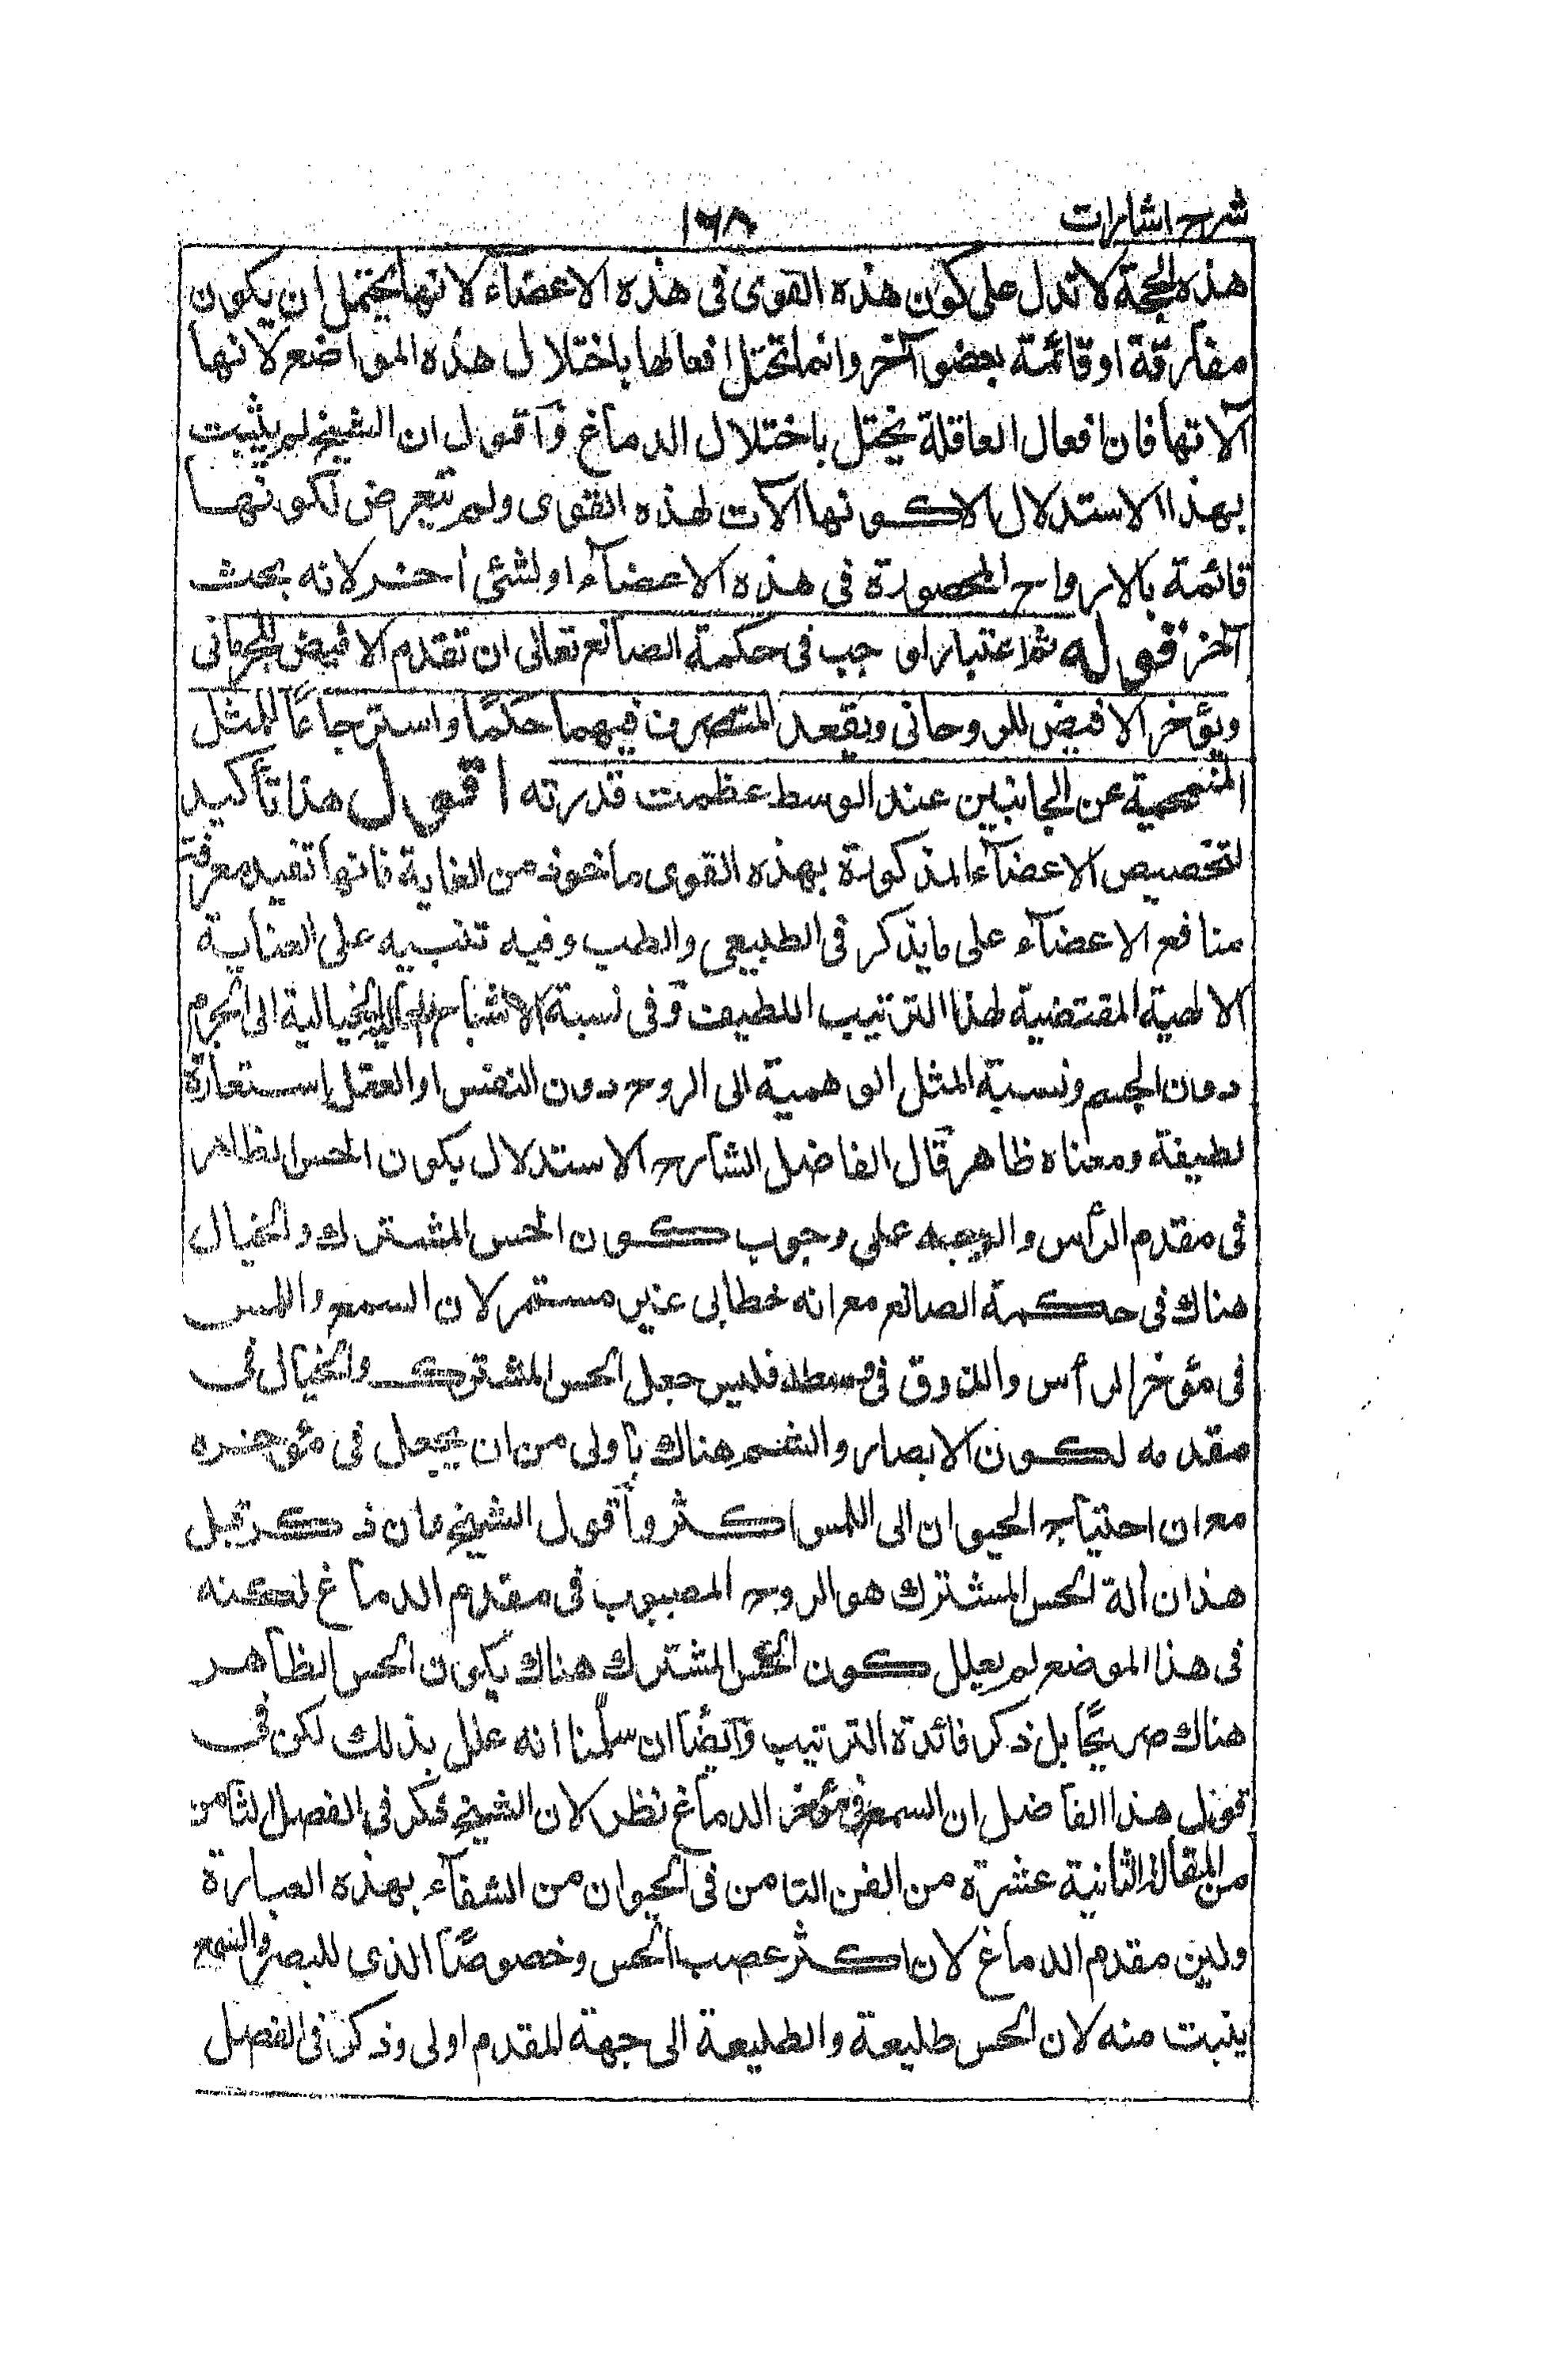 شرح اشارات ١٦٨
هذه الحجة لا تدل على كون هذه القوى فى هذه الاعضاء لانها يحتمل ان يكون
مفارقة او قائمة بعضو آخر وانما تختل افعالها باختلال هذه المواضع لانها
آلاتها فان افعال العاقلة يختل باختلال الدماغ وآقول ان الشيخ لم يثبت
بهذا الاستدلال الا كونها آلات لهذه القوى ولم يتعرض لكونها
قائمة بالارواح المحصورة فى هذه الاعضآء اولشئى اخر لانه بحث
آخر قوله ثم اعتبار اوجب فى حكمة الصانع تعالى ان تقدم الاقنص للجرمانى
ويؤخر الاقنص للروحانى ويقعد المتصرف فيهما حكمًا واسترجاعًا للمثل
المنمحية عن الجانبين عند الوسط عظمت قدرته اقول هذا تأكيد
لتخصيص الاعضآء المذكورة بهذه القوى ماخوذ من الغاية فانها تفيد معرفة
منافع الاعضآء على مايذكر فى الطبيعى والطب وفيه تنبيه على العناية
الالهية المقتضية لهذا الترتيب اللطيف وفى نسبة الاشباح الخيالية الى الجرم
دون الجسم ونسبة المثل الوهمية الى الروح دون النفس او العقل إستعارة
لطيفة ومعناه ظاهر قال الفاضل الشارح الاستدلال بكون الحس الظاهر
فى مقدم الرأس والوجه على وجوب كون الحس المشترك والخيال
هناك فى حكمة الصانع مع انه خطابى غير مستمر لان السمع واللمس
فى مؤخر الرأس والذوق فى وسطه فليس جعل الحس المشترك والخيال فى
مقدمه لكون الابصار والشم هناك بأولى من ان يجعل فى مؤخره
مع ان احتياج الحيوان الى اللمس اكثر وأقول الشيخ وان ذكر قبل
هذا ان آلة الحس المشترك هو الروح المصبوب فى مقدم الدماغ لكنه
فى هذا الموضع لم يعلل كون الحس المشترك هناك بكون الحس الظاهر
هناك صريحًا بل ذكر فائدة الترتيب وآيضًا ان سلّمنا انه علل بذلك لكن فى
قول هذا الفاضل ان السمع فى مؤخر الدماغ نظر لان الشيخ ذكر فى الفصل الثامن
من المقالة الثانية عشرة من الفن الثامن فى الحيوان من الشفآء بهذه العبارة
ولين مقدم الدماغ لان اكثر عصب الحس وخصوصًا الذى للبصر والسمع
ينبت منه لان الحس طليعة والطليعة الى جهة المقدم اولى وذكر فى الفصل